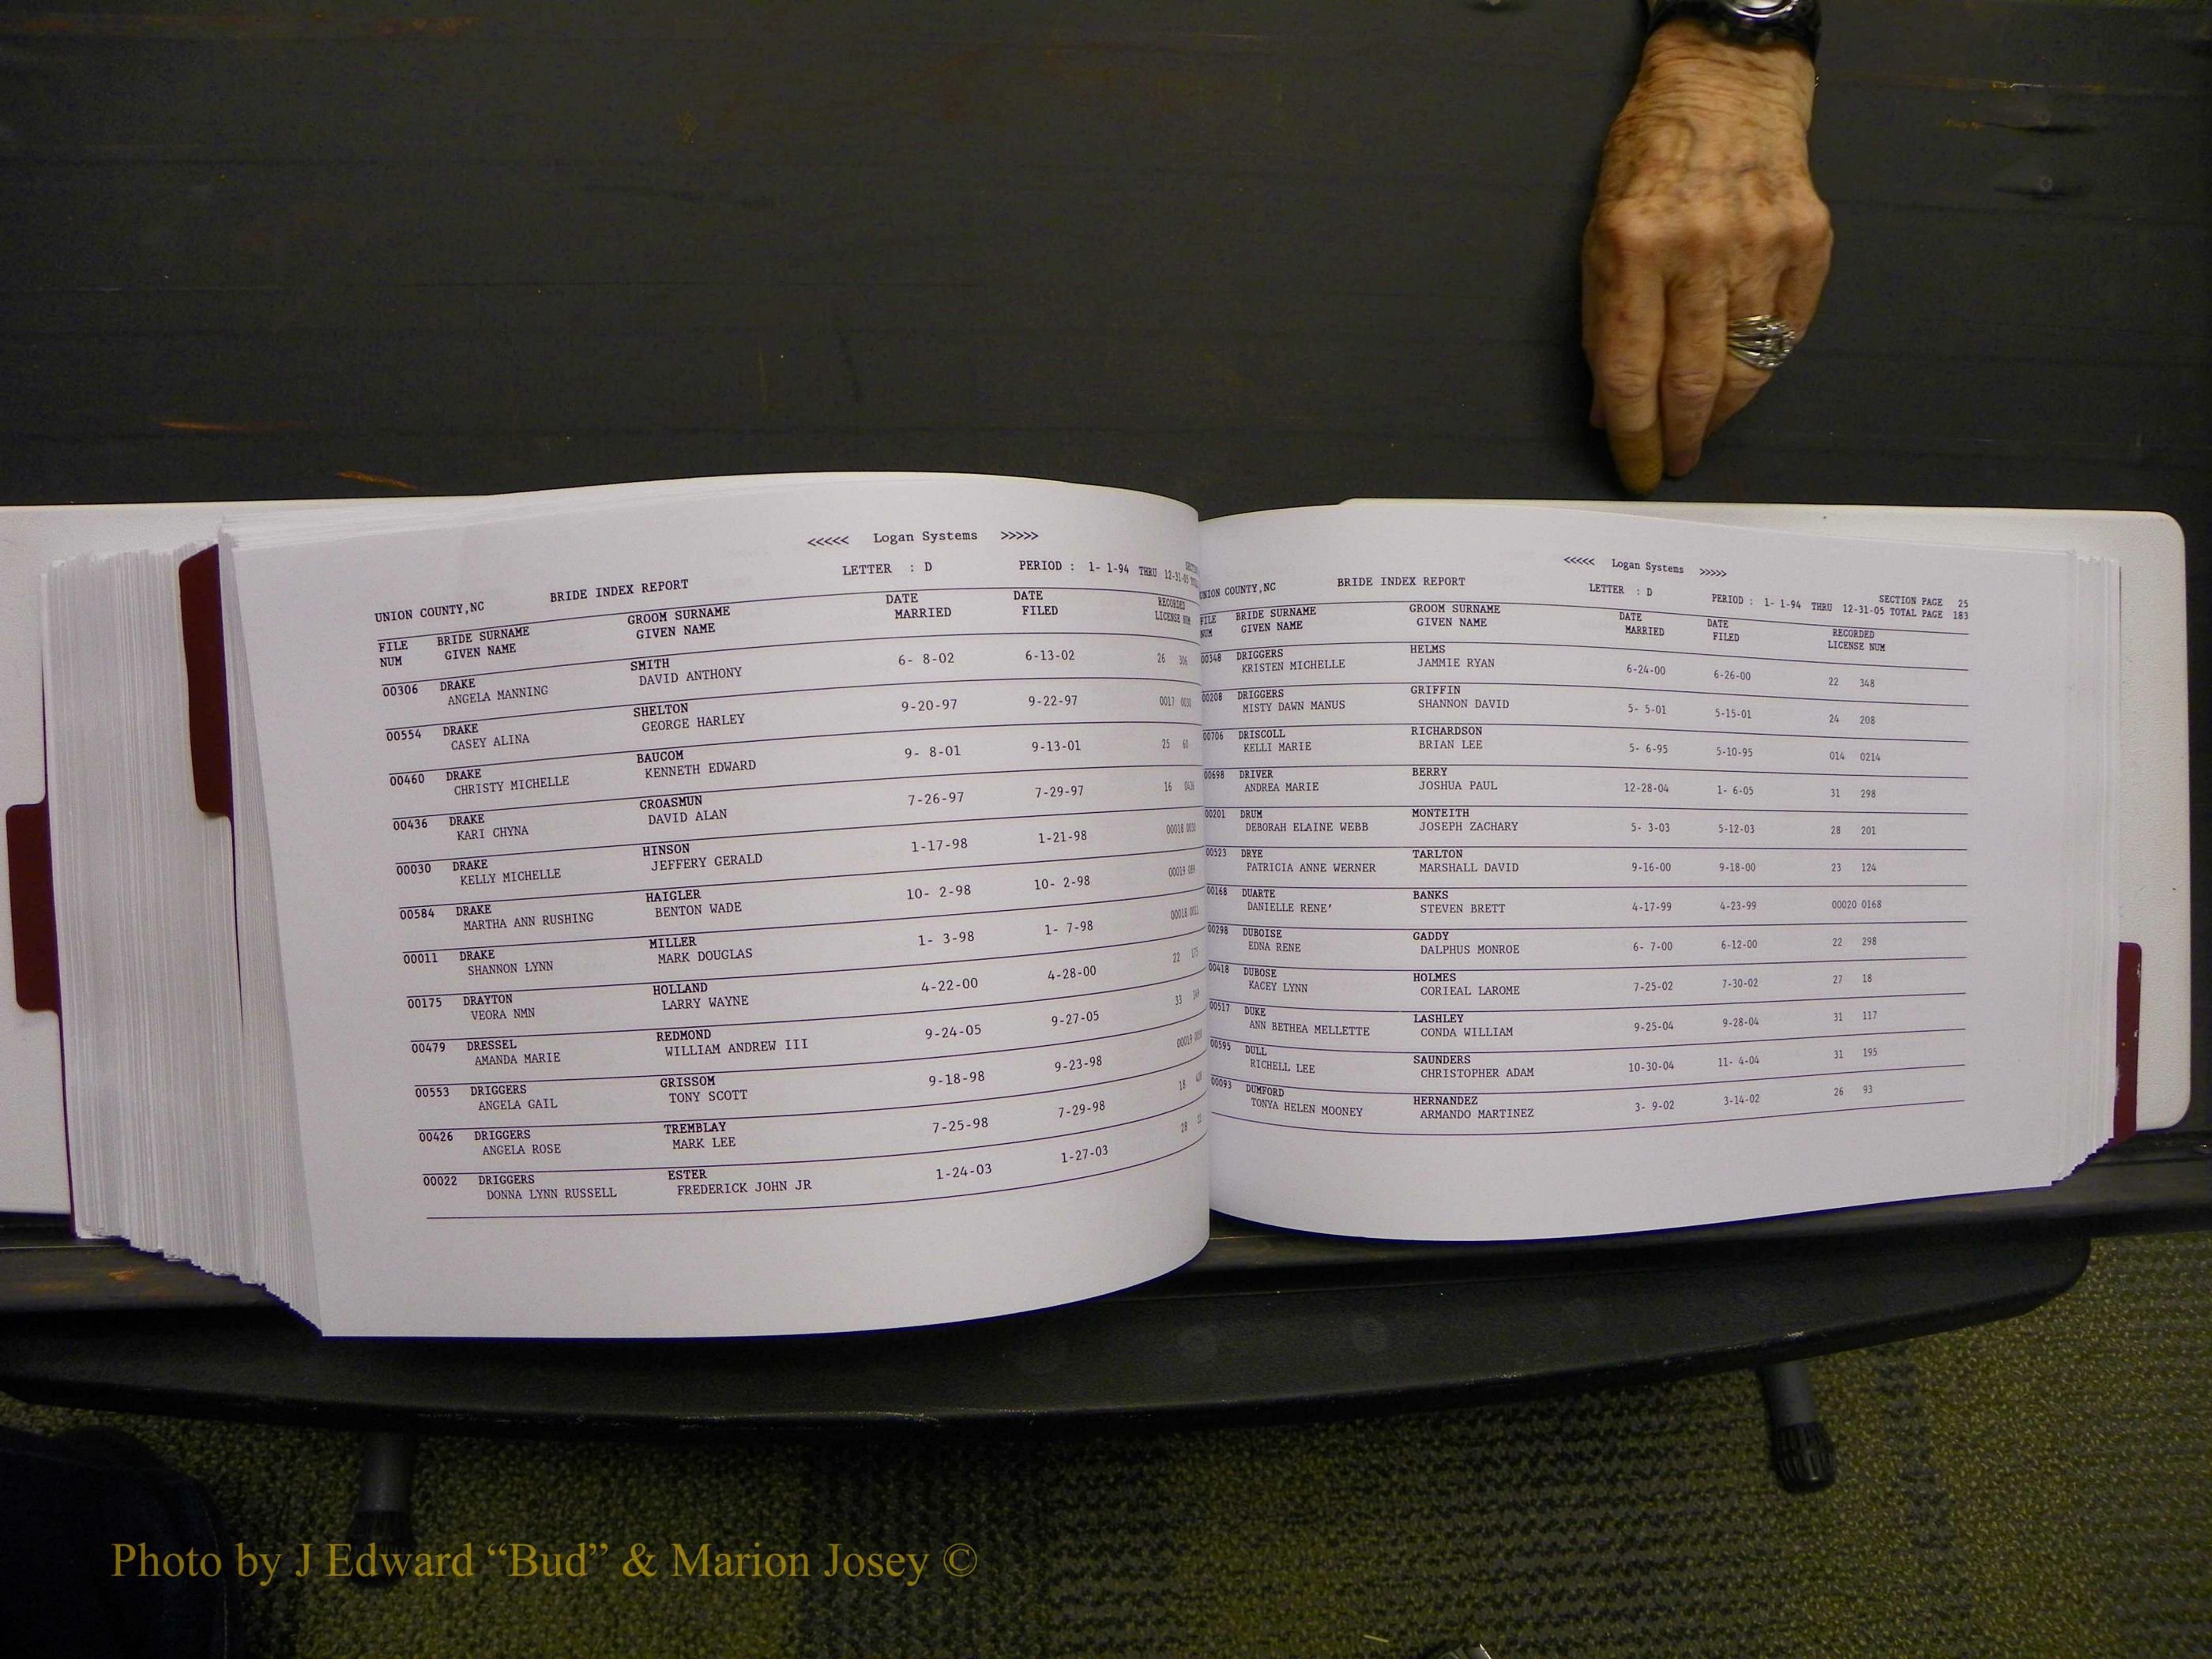 <<<<< Logan Systems >>>>>
UNION COUNTY,NC BRIDE INDEX REPORT LETTER : D PERIOD : 1- 1-94 THRU 12-31-05
FILE BRIDE SURNAME GROOM SURNAME DATE DATE RECORDED
NUM GIVEN NAME GIVEN NAME MARRIED FILED LICENSE NUM
00306 DRAKE SMITH 6- 8-02 6-13-02 26 306
ANGELA MANNING DAVID ANTHONY
00554 DRAKE SHELTON 9-20-97 9-22-97 0017
CASEY ALINA GEORGE HARLEY
00460 DRAKE BAUCOM 9- 8-01 9-13-01 25
CHRISTY MICHELLE KENNETH EDWARD
00436 DRAKE CROASMUN 7-26-97 7-29-97 16
KARI CHYNA DAVID ALAN
00030 DRAKE HINSON 1-17-98 1-21-98 00018
KELLY MICHELLE JEFFERY GERALD
00584 DRAKE HAIGLER 10- 2-98 10- 2-98 00019
MARTHA ANN RUSHING BENTON WADE
00011 DRAKE MILLER 1- 3-98 1- 7-98 00018
SHANNON LYNN MARK DOUGLAS
00175 DRAYTON HOLLAND 4-22-00 4-28-00 22
VEORA NMN LARRY WAYNE
00479 DRESSEL REDMOND 9-24-05 9-27-05 33
AMANDA MARIE WILLIAM ANDREW III
00553 DRIGGERS GRISSOM 9-18-98 9-23-98 00019
ANGELA GAIL TONY SCOTT
00426 DRIGGERS TREMBLAY 7-25-98 7-29-98 18
ANGELA ROSE MARK LEE
00022 DRIGGERS ESTER 1-24-03 1-27-03 28
DONNA LYNN RUSSELL FREDERICK JOHN JR
<<<<< Logan Systems >>>>>
SECTION PAGE 25
UNION COUNTY,NC BRIDE INDEX REPORT LETTER : D PERIOD : 1- 1-94 THRU 12-31-05 TOTAL PAGE 183
FILE BRIDE SURNAME GROOM SURNAME DATE DATE RECORDED
NUM GIVEN NAME GIVEN NAME MARRIED FILED LICENSE NUM
00348 DRIGGERS HELMS 6-24-00 6-26-00 22 348
KRISTEN MICHELLE JAMMIE RYAN
00208 DRIGGERS GRIFFIN 5- 5-01 5-15-01 24 208
MISTY DAWN MANUS SHANNON DAVID
00706 DRISCOLL RICHARDSON 5- 6-95 5-10-95 014 0214
KELLI MARIE BRIAN LEE
00698 DRIVER BERRY 12-28-04 1- 6-05 31 298
ANDREA MARIE JOSHUA PAUL
00201 DRUM MONTEITH 5- 3-03 5-12-03 28 201
DEBORAH ELAINE WEBB JOSEPH ZACHARY
00523 DRYE TARLTON 9-16-00 9-18-00 23 124
PATRICIA ANNE WERNER MARSHALL DAVID
00168 DUARTE BANKS 4-17-99 4-23-99 00020 0168
DANIELLE RENE' STEVEN BRETT
00298 DUBOISE GADDY 6- 7-00 6-12-00 22 298
EDNA RENE DALPHUS MONROE
00418 DUBOSE HOLMES 7-25-02 7-30-02 27 18
KACEY LYNN CORIEAL LAROME
00517 DUKE LASHLEY 9-25-04 9-28-04 31 117
ANN BETHEA MELLETTE CONDA WILLIAM
00595 DULL SAUNDERS 10-30-04 11- 4-04 31 195
RICHELL LEE CHRISTOPHER ADAM
00093 DUMFORD HERNANDEZ 3- 9-02 3-14-02 26 93
TONYA HELEN MOONEY ARMANDO MARTINEZ
Photo by J Edward “Bud” & Marion Josey ©